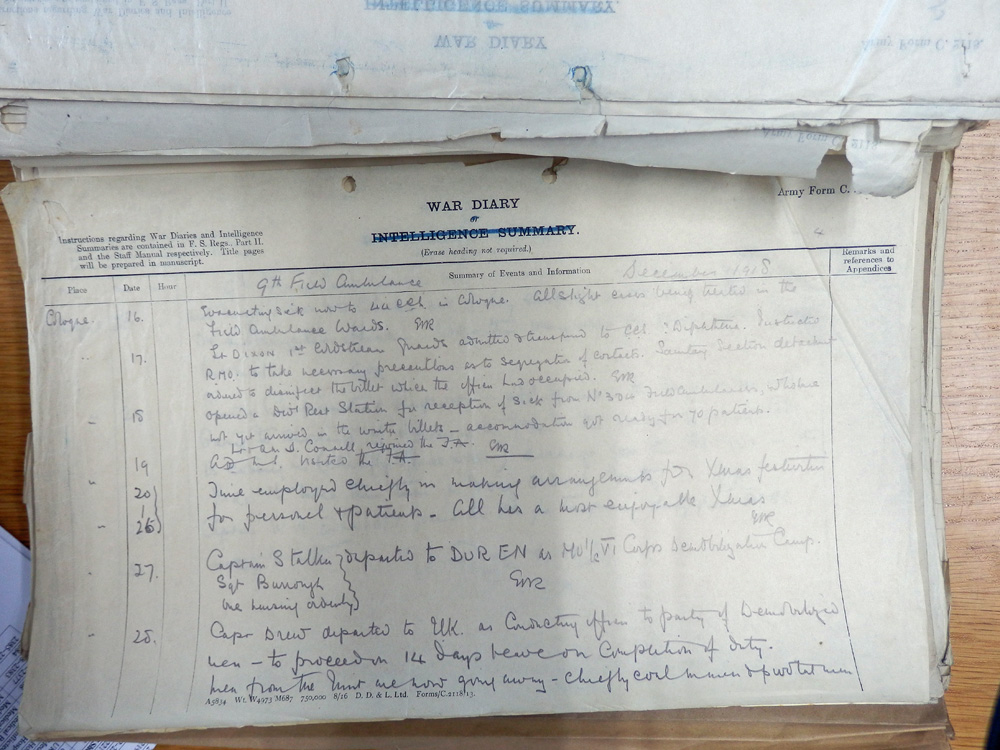 INTELLIGENCE SUMMARY.
WAR DIARY
Army Form C. 2118.
Army Form C. 2118.
Army Form C.
WAR DIARY
or
INTELLIGENCE SUMMARY.
(Erase heading not required.)
Instructions regarding War Diaries and Intelligence
Summaries are contained in F. S. Regs., Part II.
and the Staff Manual respectively. Title pages
will be prepared in manuscript.
Place Date Hour Summary of Events and Information Remarks and
references to
Appendices
9th Field Ambulance December 1918
Cologne. 16. Evacuating sick now to 44 CCS in Cologne. All slight cases being treated in the
Field Ambulance Wards.
" 17. Lt DIXON 1st Coldstream Guards admitted & transferred to CCS: Diphtheria.
RMO. to take necessary precautions as to segregation of contacts. Sanitary Section
ordered to disinfect the billet which the officer had occupied.
" 18 opened a Div Rest Station for reception of sick from No 3 & 4 Field Ambulances, who have
not yet arrived in the billets - accommodation got ready for 70 patients.
Lt & QM S. Connell, rejoined the F.A.
" 19 visited the F.A.
" 20 Time employed chiefly in making arrangements for Xmas festivities
to
" 26 for personnel & patients - All has a most enjoyable Xmas
" 27. Captain Stalker departed to DUREN as MO i/c VI Corps Demobilization Camp.
Sgt Burrough
one nursing orderly
" 28. Capt Drew departed to UK. as Conducting officer to party of Demobilized
men - to proceed on 14 days leave on Completion of duty.
Men from the Unit are now going away - chiefly coal miners & pivotal men
A5834 Wt. W4973/M687 750,000 8/16 D. D. & L. Ltd. Forms/C.2118/13.